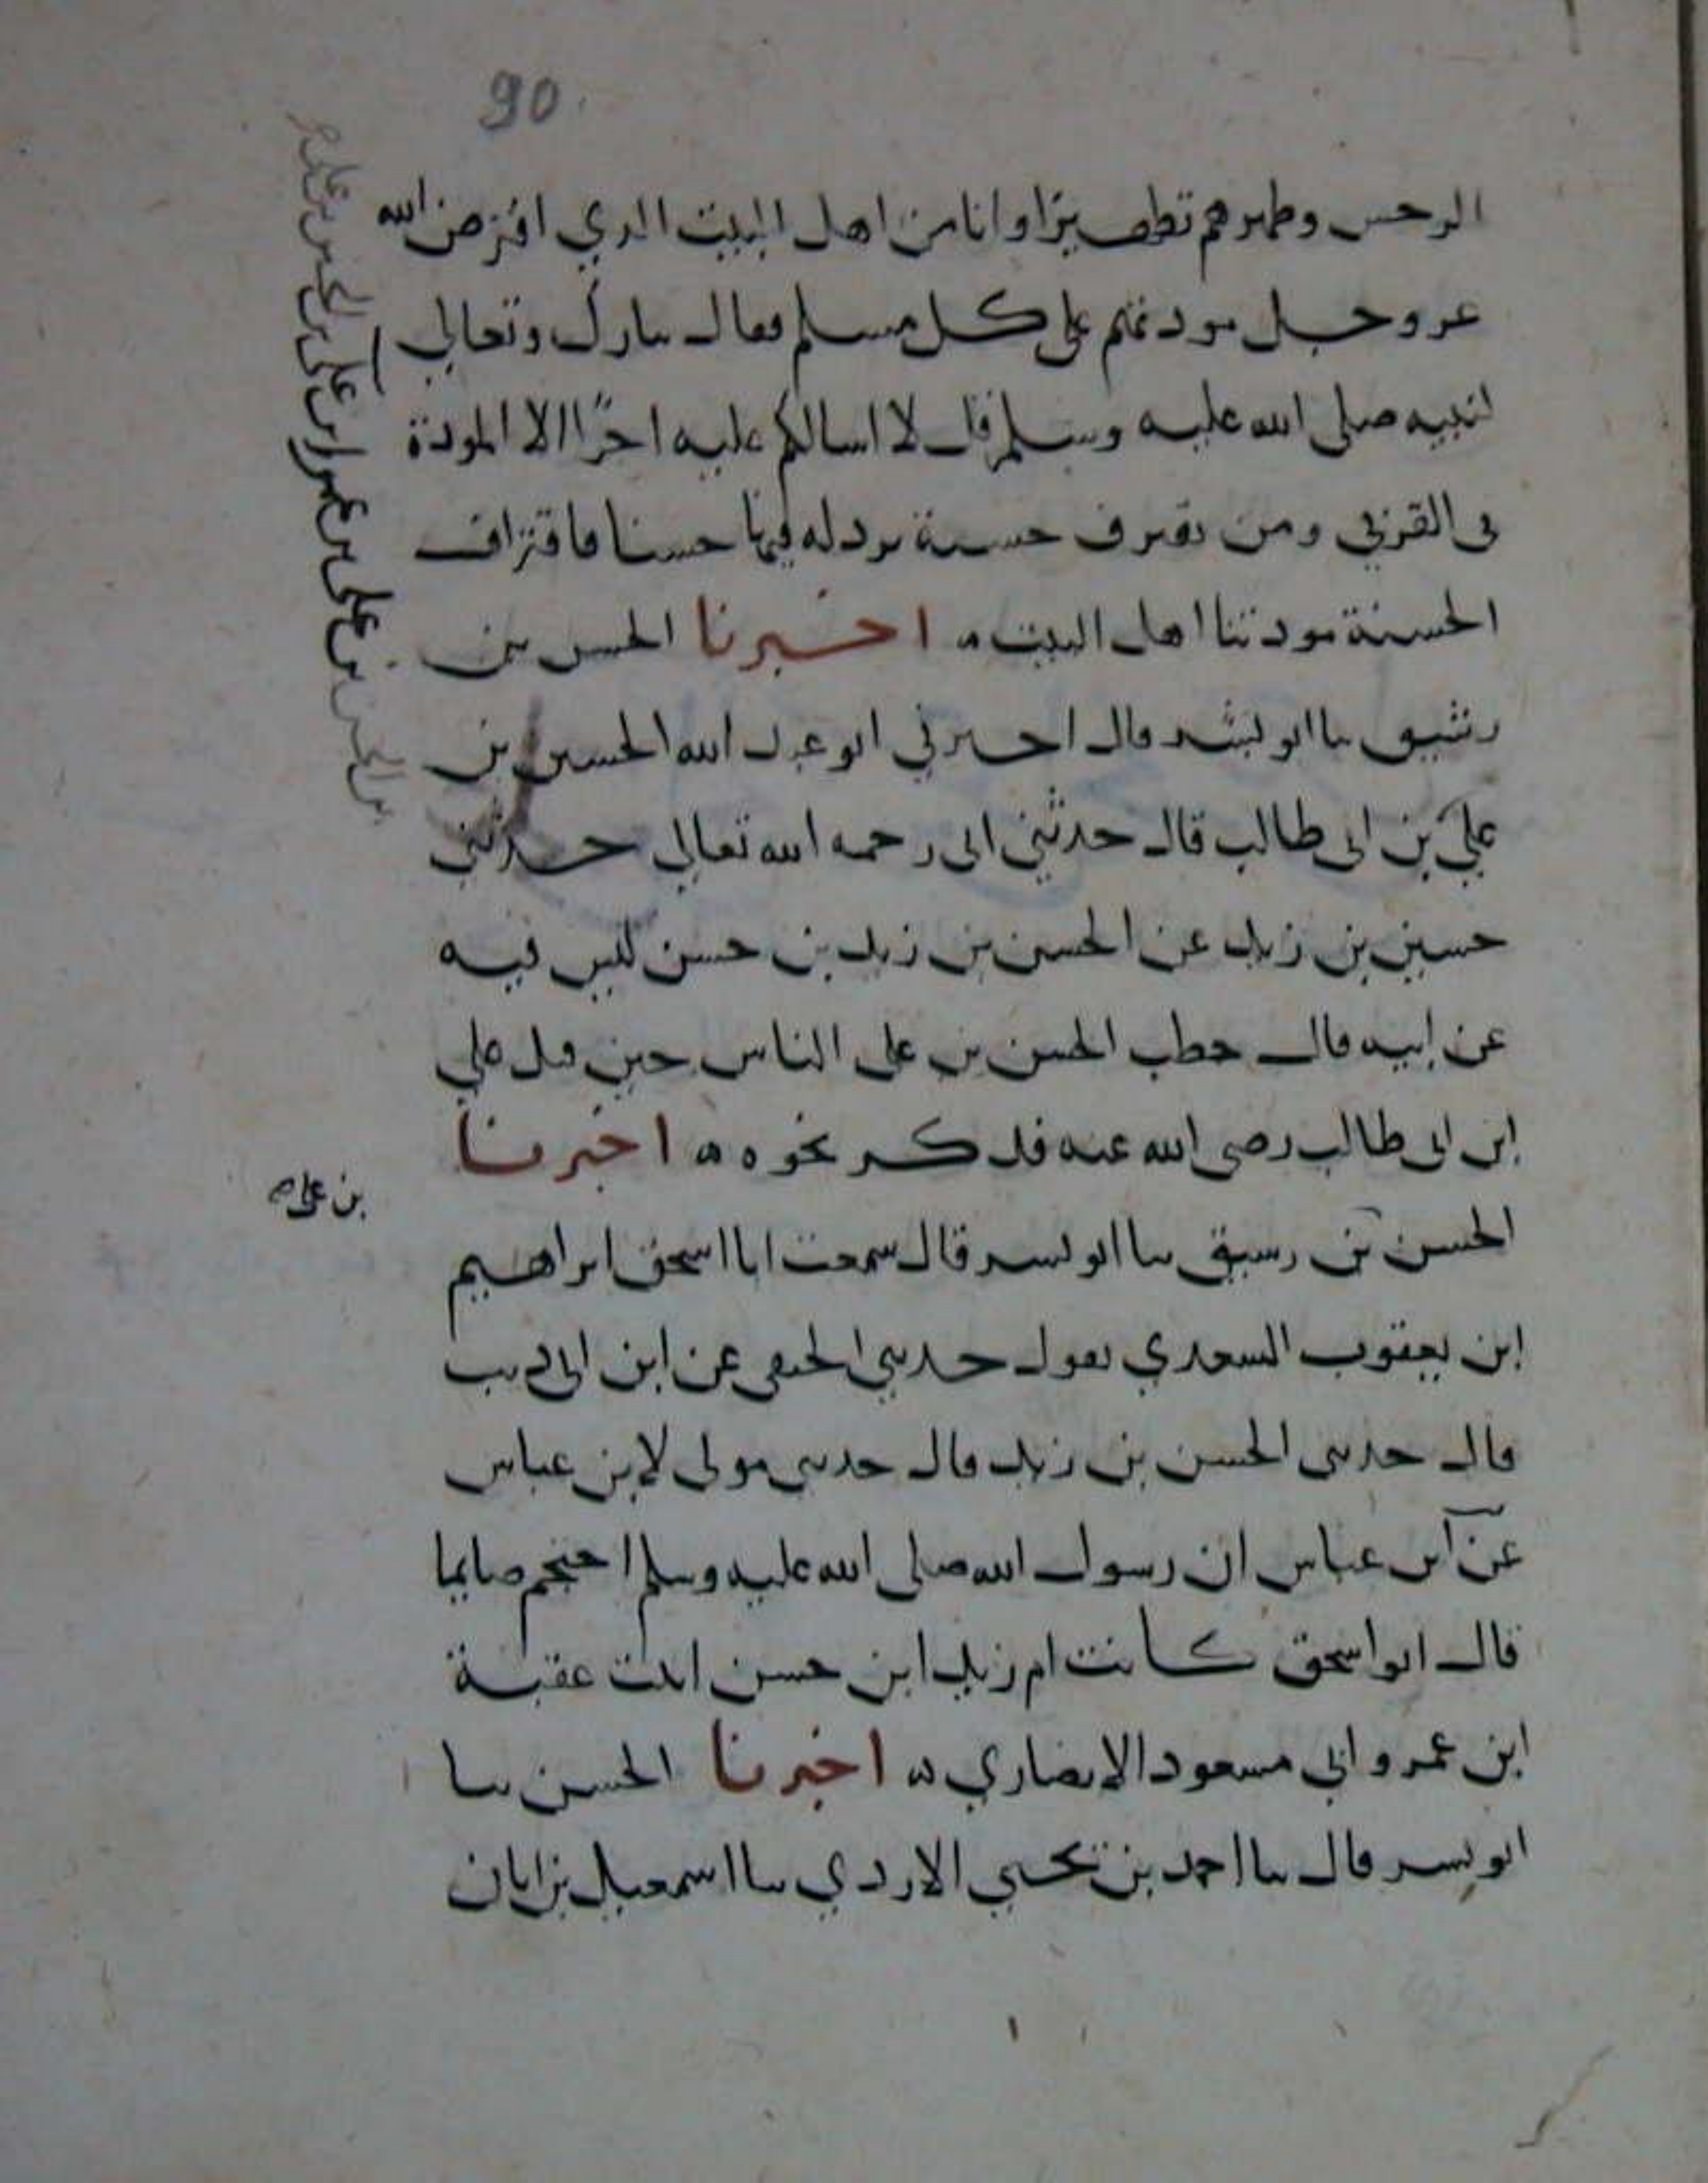 90
الرحس وطهرهم تطهيرا وانا من اهل البيت الدي افترض الله
عز وجل مودتهم على كل مسلم فقال تبارك وتعالي
لنبيه صلى الله عليه وسلم قل لا اسالكم عليه اجرًا الا المودة
في القربي ومن يقترف حسنة نزد له فيها حسنا فاقتراف
الحسنة مودتنا اهل البيت ه اخبرنا الحسن بن
رشيق نا ابو بشر قال اخبرني ابو عبد الله الحسين بن
علي بن ابى طالب قال حدثني ابى رحمه الله تعالي حدثني
حسين بن زيد عن الحسن بن زيد بن حسن ليس فيه
عن ابيه قال خطب الحسن بن على الناس حين قتل علي
ابن ابى طالب رضى الله عنه فذكر نحوه ه اخبرنا
بن على
الحسن بن رشيق نا ابو بشر قال سمعت ابا اسحق ابراهيم
ابن يعقوب السعدي يقول حدثني الحنفي عن ابن ابى ذيب
قال حدثنى الحسن بن زيد قال حدثنى مولى لابن عباس
عن ابن عباس ان رسول الله صلى الله عليه وسلم احتجم صايما
قال ابو اسحق كانت ام زيد ابن حسن ابنت عقبة
ابن عمرو ابي مسعود الانصاري ه اخبرنا الحسن نا
ابو بشر قال نا احمد بن يحيى الازدي نا اسمعيل بن ابان